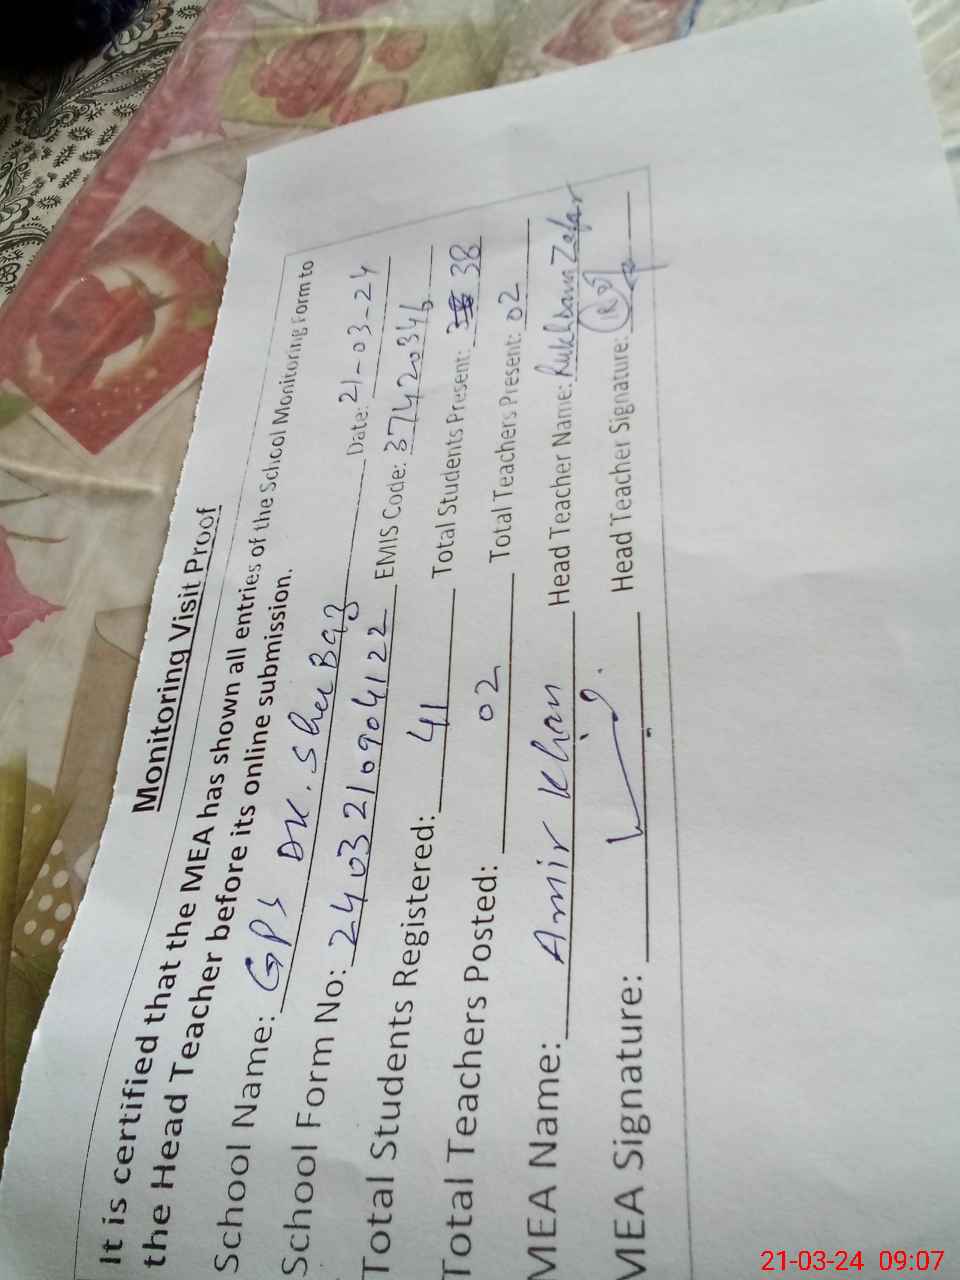 Monitoring Visit Proof
It is certified that the MEA has shown all entries of the School Monitoring Form to
the Head Teacher before its online submission.
School Name: GPS DK. Sher Baz Date: 21-03-24
School Form No: 2403210904122 EMIS Code: 37420346
Total Students Registered: 41 Total Students Present: 38
Total Teachers Posted: 02 Total Teachers Present: 02
MEA Name: Amir Khan Head Teacher Name: Rukhsam Zafar
MEA Signature: Head Teacher Signature:
21-03-24 09:07